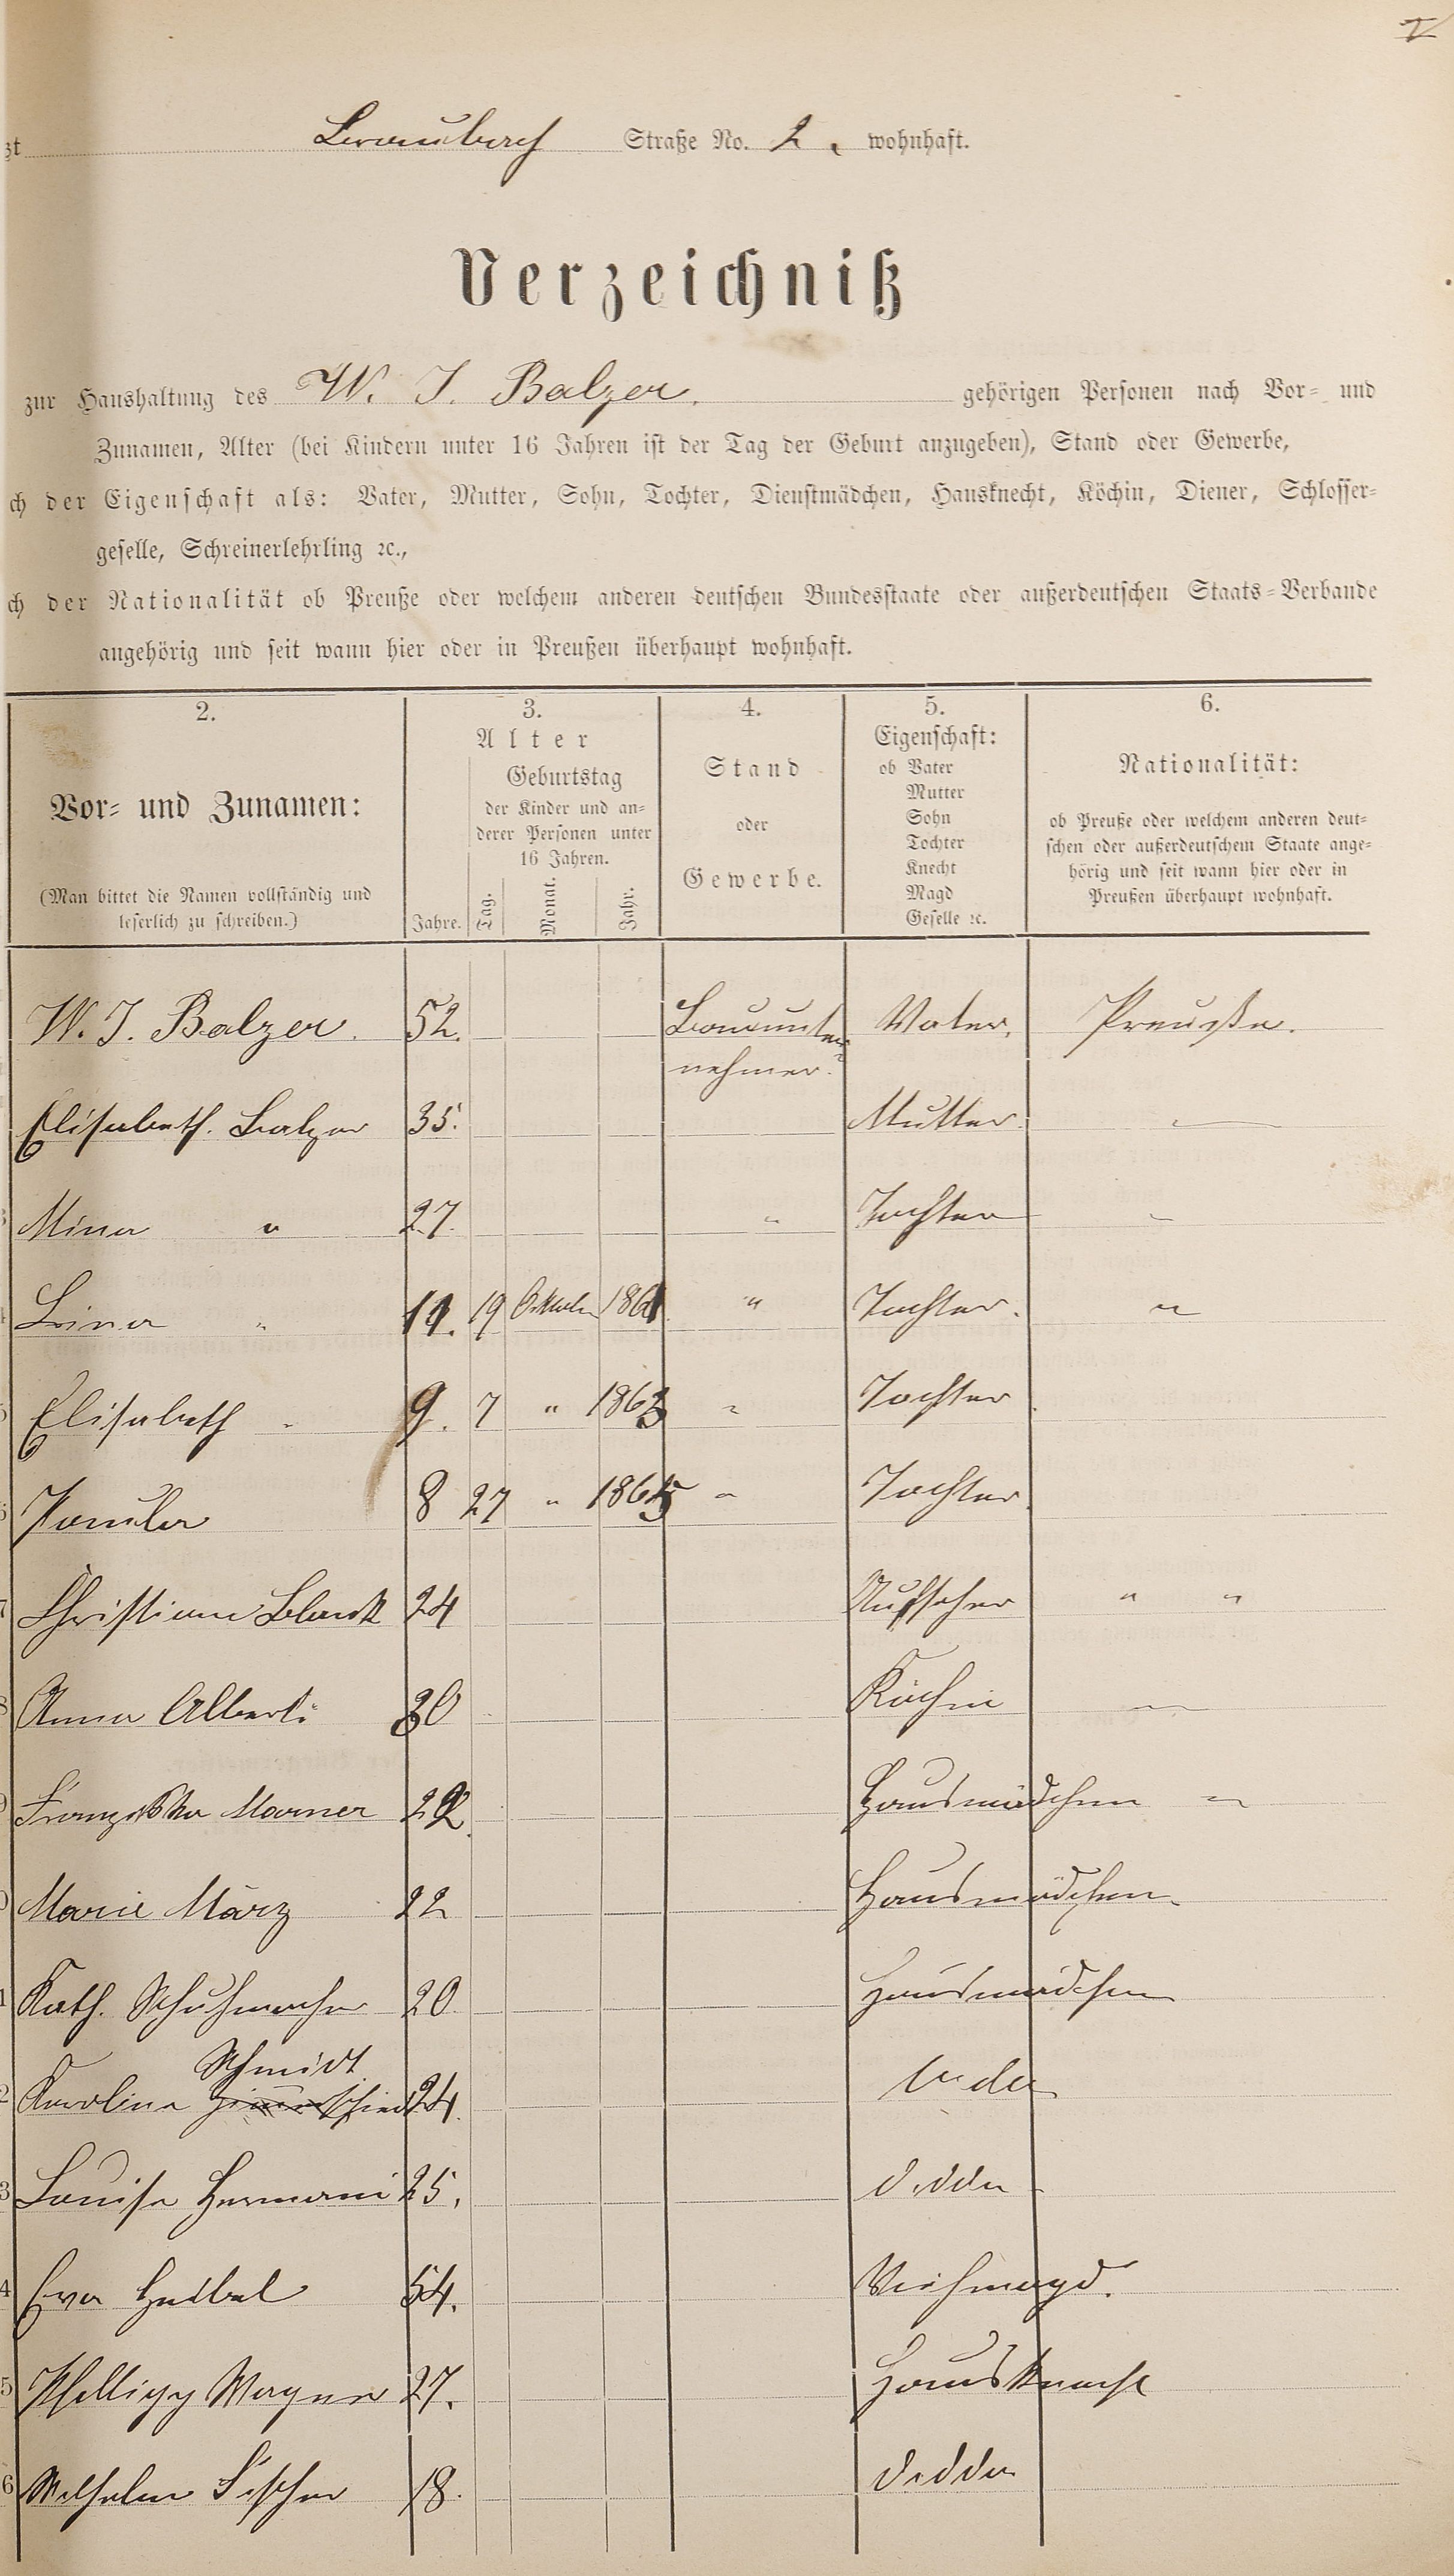 zt Straße No. 2, wohnhaft.
Verzeichniß
zur Haushaltung des W. J. Balzer. gehörigen Personen nach Vor- und
Zunamen, Alter (bei Kindern unter 16 Jahren ist der Tag der Geburt anzugeben), Stand oder Gewerbe,
ch der Eigenschaft als: Vater, Mutter, Sohn, Tochter, Dienstmädchen, Hausknecht, Köchin, Diener, Schlosser-
geselle, Schreinerlehrling ꝛc.,
ch der Nationalität ob Preuße oder welchem anderen deutschen Bundesstaate oder außerdeutschen Staats-Verbande
angehörig und seit wann hier oder in Preußen überhaupt wohnhaft.
2.
Vor- und Zunamen:
(Man bittet die Namen vollständig und
leserlich zu schreiben.)
3.
Alter
Geburtstag
der Kinder und an-
derer Personen unter
16 Jahren.
Jahre. Tag. Monat. Jahr.
4.
Stand
oder
Gewerbe.
5.
Eigenschaft:
ob Vater
Mutter
Sohn
Tochter
Knecht
Magd
Geselle ꝛc.
6.
Nationalität:
ob Preuße oder welchem anderen deut-
schen oder außerdeutschem Staate ange-
hörig und seit wann hier oder in
Preußen überhaupt wohnhaft.
W. J. Balzer. 52. Bauunter- Vater. Preuße.
nehmer.
Elisabeth. Balzer 35. Mutter. "
Mina " 27. " Tochter "
Lina " 11. 19 Oktober 1861 " Tochter. "
Elisabeth " 9. 7 " 1863 " Tochter
Paula 8 27 " 1865 " Tochter
Christian Blank 24 Aufseher " "
Anna Alberti 30 Köchin "
Franziska Marner 22 Hausmädchen "
Marie März 22 Hausmädchen
Kath. Schuhmacher 20 Hausmädchen
Schmidt
Karolina 24.
Louise Hermani 25.
Eva Heibel 54. Viehmagd.
Philipp Wagner 27. Hausknecht
Wilhelm Fischer 18.